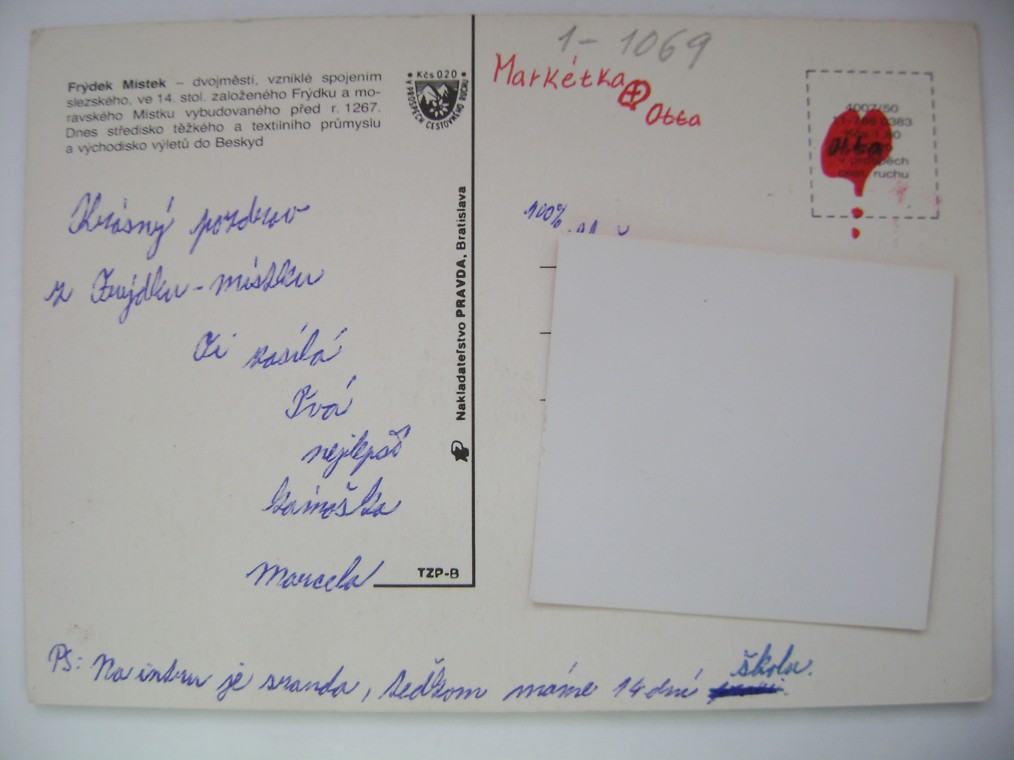 Frýdek Místek – dvojměstí, vzniklé spojením
slezského, ve 14. stol. založeného Frýdku a mo-
ravského Místku vybudovaného před r. 1267.
Dnes středisko těžkého a textilního průmyslu
a východisko výletů do Beskyd
• Kčs 0.20 •
V PROSPĚCH CESTOVNÉHO RUCHU
Krásný pozdrav
z Frýdku-místku
Ti zasílá
Tvá
nejlepší
kámoška
Marcela
PS: Na intru je sranda, teďkom máme 14 dní školu.
Nakladateľstvo PRAVDA, Bratislava
TZP-B
1-1069
Markétka
Otta
4007/50
Otta
v prospěch
cest. ruchu
100%